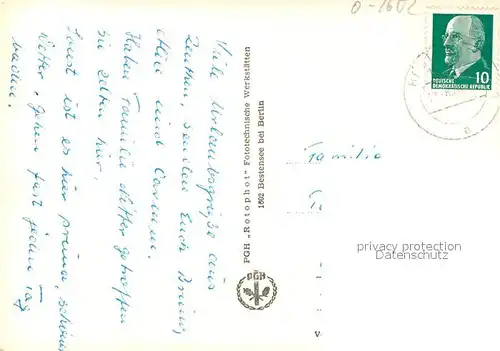 0-1602
DEUTSCHE
DEMOKRATISCHE REPUBLIK
10
Viele Urlaubsgrüße aus
Zeuthen, senden Euch Bruni,
und Carmen.
Haben Familie getroffen
Sie zelten hier.
Sonst ist es hier prima, schönes
Wetter, gehen fast jeden Tag
baden.
PGH „Rotophot" Fototechnische Werkstätten
1602 Bestensee bei Berlin
PGH
Familie
privacy protection
v